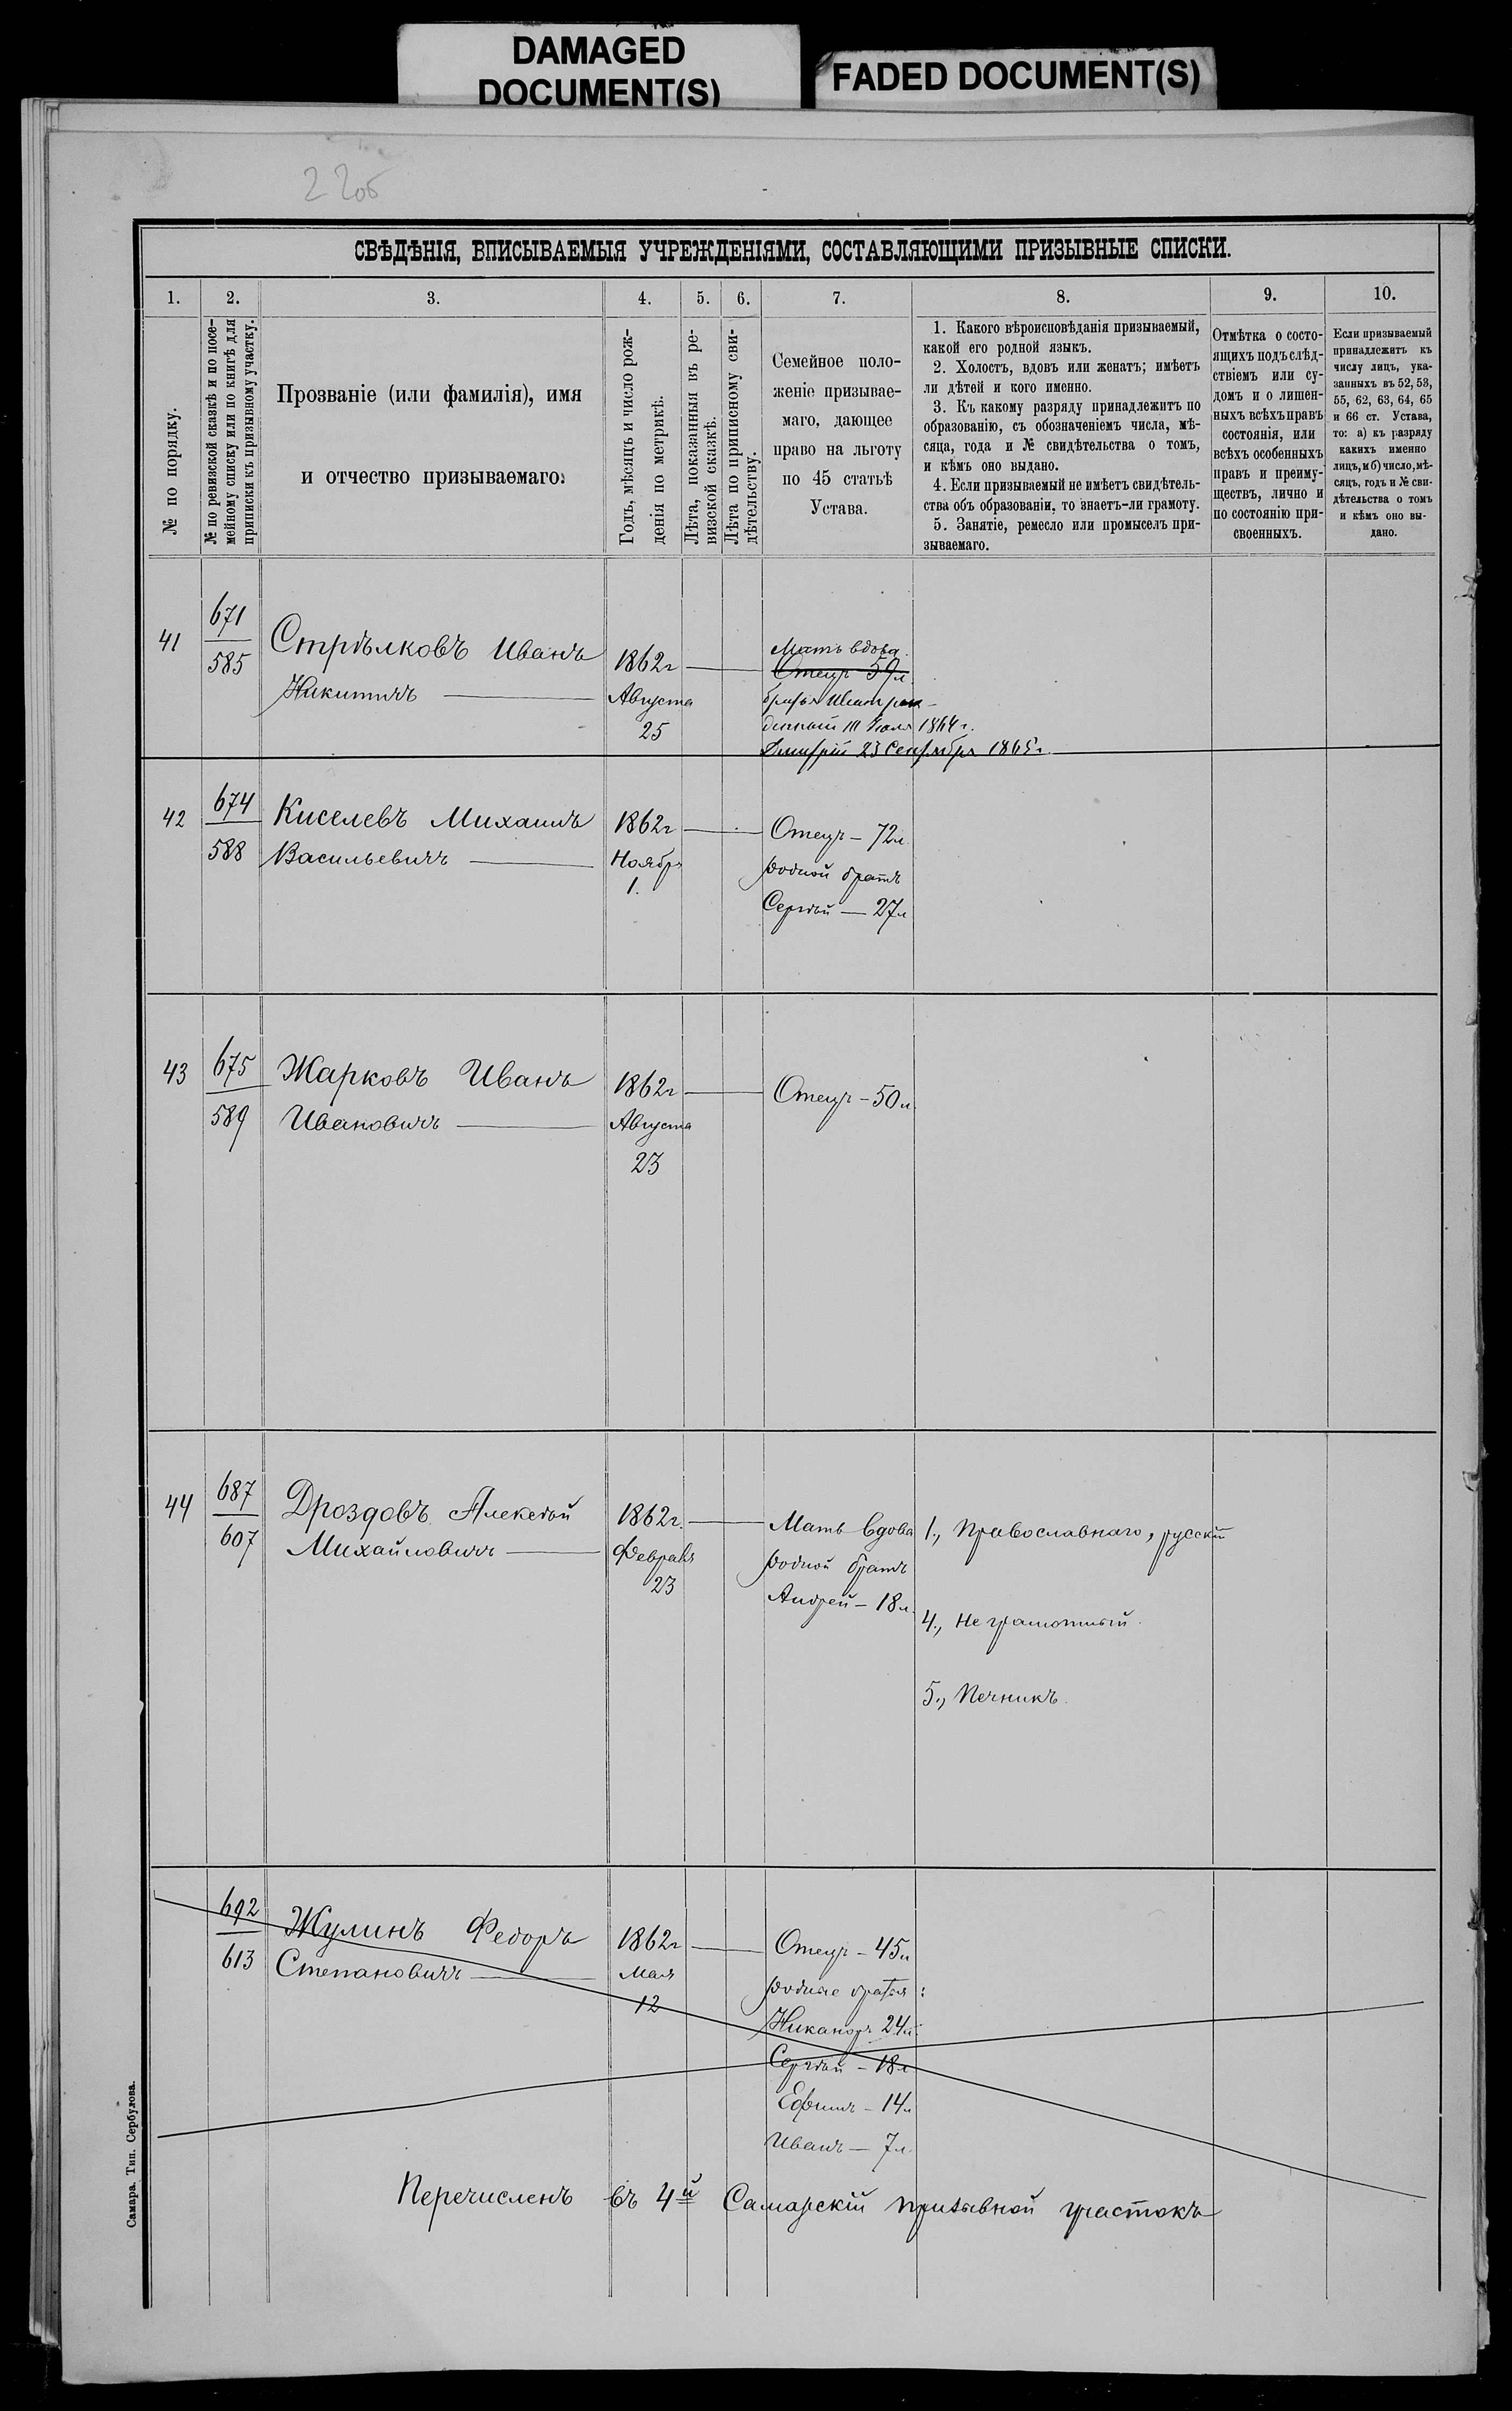 DAMAGED
DOCUMENT(S)
FADED DOCUMENT(S)
2 2об
СВѢДѢНІЯ, ВПИСЫВАЕМЫЯ УЧРЕЖДЕНІЯМИ, СОСТАВЛЯЮЩИМИ ПРИЗЫВНЫЕ СПИСКИ.
1. 2. 3. 4. 5. 6. 7. 8. 9. 10.
№ по порядку.
№ по ревизской сказкѣ и по посе-
мейному списку или по книгѣ для
приписки къ призывному участку.
Прозваніе (или фамилія), имя
и отчество призываемаго:
Годъ, мѣсяцъ и число рож-
денія по метрикѣ.
Лѣта, показанныя въ ре-
визской сказкѣ.
Лѣта по приписному сви-
дѣтельству.
Семейное поло-
женіе призывае-
маго, дающее
право на льготу
по 45 статьѣ
Устава.
1. Какого вѣроисповѣданія призываемый,
какой его родной языкъ.
2. Холостъ, вдовъ или женатъ; имѣетъ
ли дѣтей и кого именно.
3. Къ какому разряду принадлежитъ по
образованію, съ обозначеніемъ числа, мѣ-
сяца, года и № свидѣтельства о томъ,
и кѣмъ оно выдано.
4. Если призываемый не имѣетъ свидѣтель-
ства объ образованіи, то знаетъ-ли грамоту.
5. Занятіе, ремесло или промыселъ при-
зываемаго.
Отмѣтка о состо-
ящихъ подъ слѣд-
ствіемъ или су-
домъ и о лишен-
ныхъ всѣхъ правъ
состоянія, или
всѣхъ особенныхъ
правъ и преиму-
ществъ, лично и
по состоянію при-
своенныхъ.
Если призываемый
принадлежитъ къ
числу лицъ, ука-
занныхъ въ 52, 53,
55, 62, 63, 64, 65
и 66 ст. Устава,
то: а) къ разряду
какихъ именно
лицъ, и б) число, мѣ-
сяцъ, годъ и № сви-
дѣтельства о томъ
и кѣмъ оно вы-
дано.
41
671
585
Стрѣлковъ Иванъ
Никитичъ
1862г
Августа
25
Мать вдова.
Отецъ 59л.
братья
Іюля 1864 г.
Дмитрій 23 Сентября 1865г.
42
674
588
Киселевъ Михаилъ
Васильевичъ
1862г
Ноября
1.
Отецъ — 72л.
родной братъ
Сергѣй — 27л
43
675
589
Жарковъ Иванъ
Ивановичъ
1862г
Августа
23
Отецъ — 50л.
44
687
607
Дроздовъ Алексѣй
Михайловичъ
1862г.
Февраля
23
Мать вдова
родной братъ
Андрей — 18л.
1., Православнаго, русскій
4., Не грамотный.
5., Печникъ.
692
613
Жулинъ Федоръ
Степановичъ
1862г
Мая
12
Отецъ — 45л
родные братья:
Никаноръ 24л.
Сергѣй — 18л
Ефимъ — 14л
Иванъ — 7л.
Перечисленъ въ 4й Самарскій призывной участокъ
Самара. Тип. Сербулова.